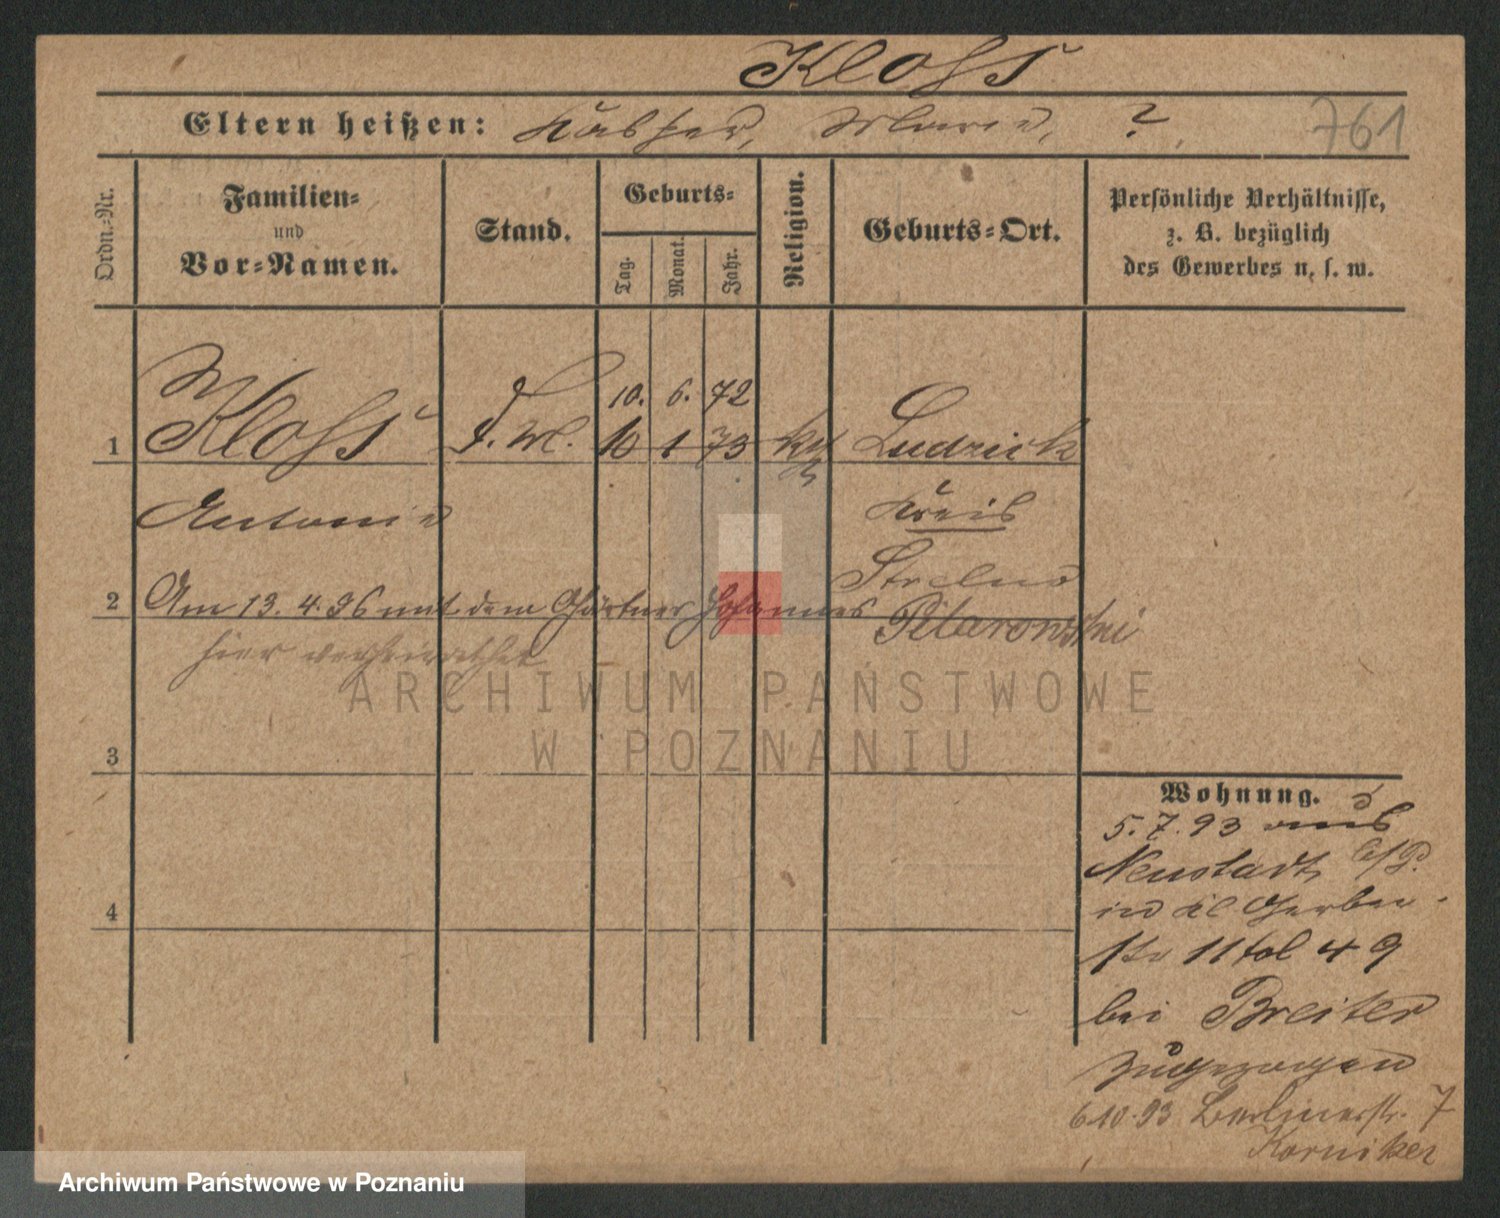 Kloss
Eltern heißen: Kasper, Marie, ?
761
Ordn.-Nr.
Familien-
und
Vor-Namen.
Stand.
Geburts-
Tag.
Monat.
Jahr.
Religion.
Geburts-Ort.
Persönliche Verhältnisse,
z. B. bezüglich
des Gewerbes u. s. w.
10. 6. 72
1 Kloss D. M. 10 1 73 kth Ludzisk
Antonie Kreis
Strelno
2 Am 13. 4. 96 mit dem Gärtner Johannes Pilarowski
hier verheirathet
ARCHIWUM PAŃSTWOWE
W POZNANIU
3
4
Wohnung.
5. 7. 93 aus
Neustadt b/P.
in kl Gerber-
str 11 fol 49
bei Breiter
zugezogen
6.10.93 Berlinerstr. 7
Korniker
Archiwum Państwowe w Poznaniu